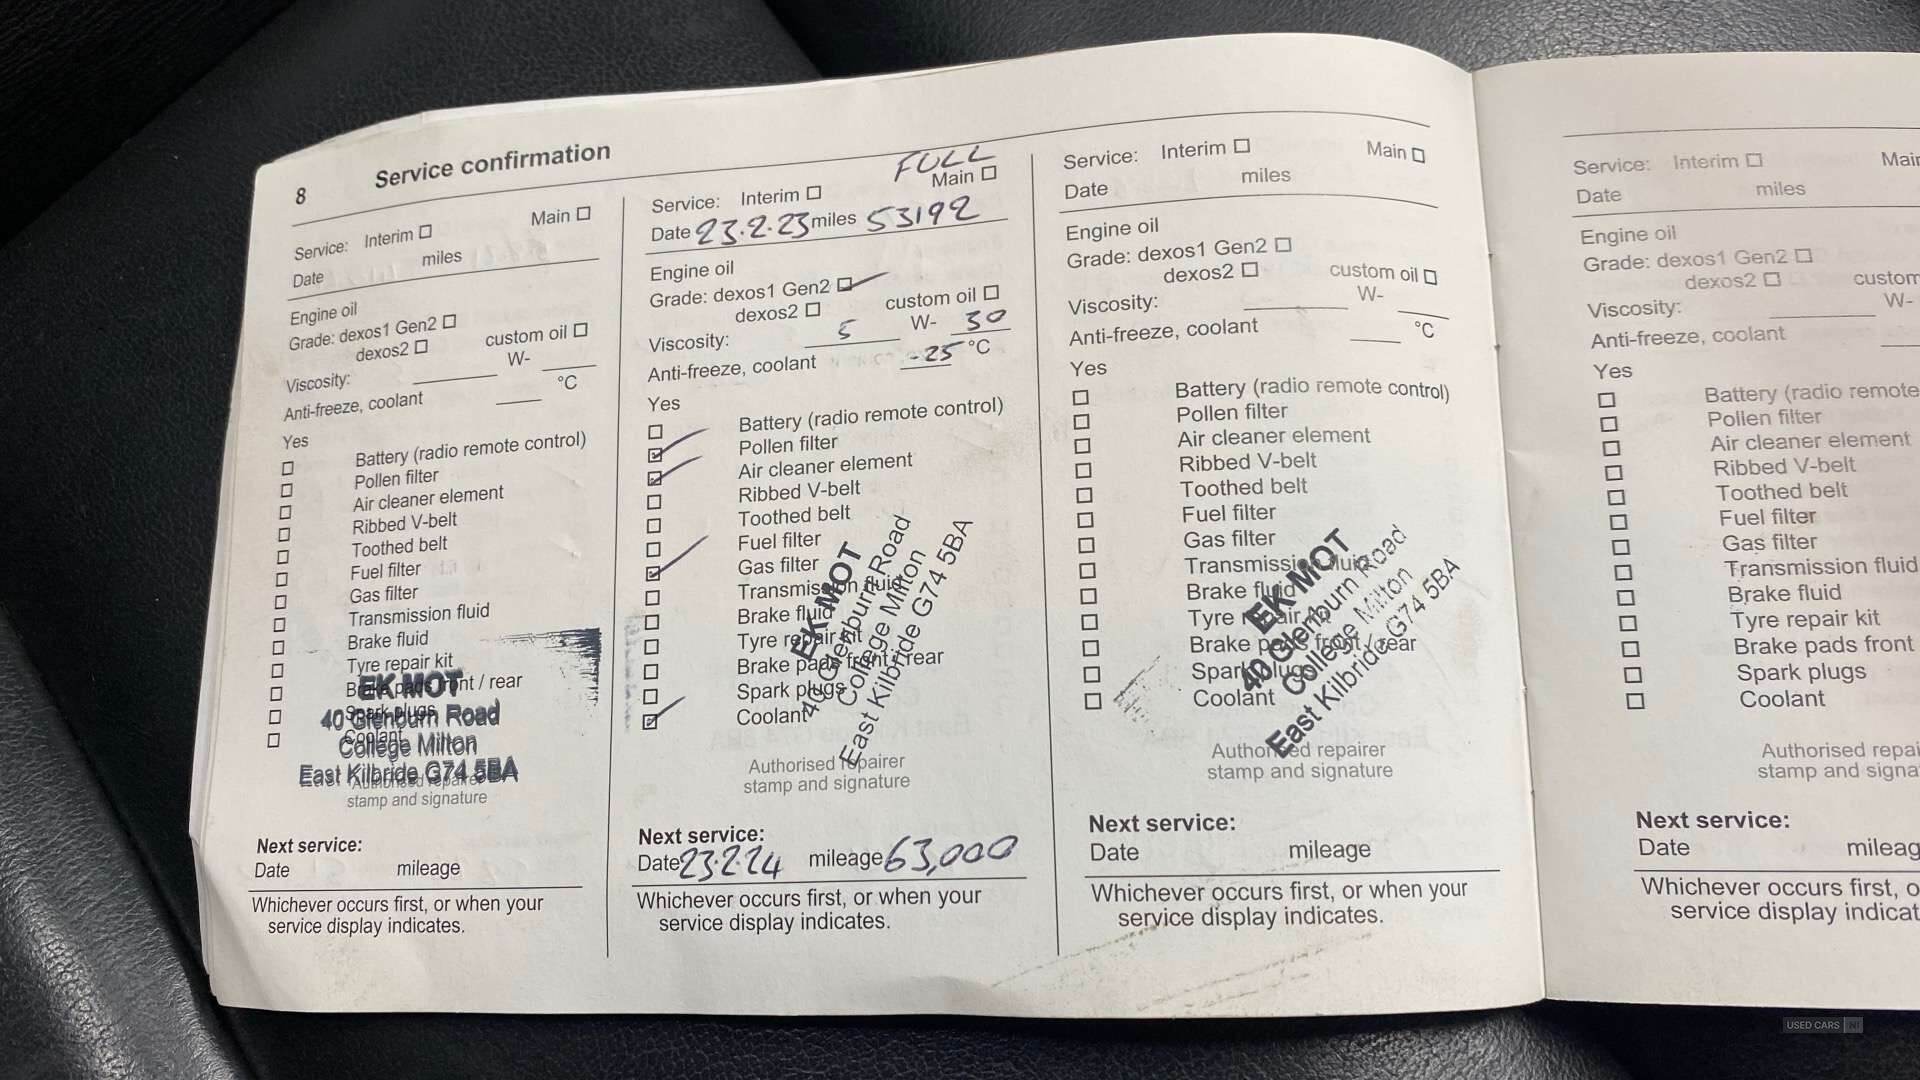 8 Service confirmation
Service: Interim Main
Date miles
Engine oil
Grade: dexos1 Gen2
dexos2 custom oil
Viscosity: W-
Anti-freeze, coolant °C
Yes
Battery (radio remote control)
Pollen filter
Air cleaner element
Ribbed V-belt
Toothed belt
Fuel filter
Gas filter
Transmission fluid
Brake fluid
Tyre repair kit
Brake pads front / rear
Spark plugs
Coolant
EK MOT
40 Glenburn Road
College Milton
East Kilbride G74 5BA
Authorised repairer
stamp and signature
Next service:
Date mileage
Whichever occurs first, or when your
service display indicates.
FULL
Service: Interim Main
Date 23.2.23 miles 53192
Engine oil
Grade: dexos1 Gen2
dexos2 custom oil
Viscosity: 5 W- 30
Anti-freeze, coolant -25 °C
Yes
Battery (radio remote control)
Pollen filter
Air cleaner element
Ribbed V-belt
Toothed belt
Fuel filter
Gas filter
Transmission fluid
Brake fluid
Tyre repair kit
Brake pads front / rear
Spark plugs
Coolant
EK MOT
40 Glenburn Road
College Milton
East Kilbride G74 5BA
Authorised repairer
stamp and signature
Next service:
Date 23.2.24 mileage 63,000
Whichever occurs first, or when your
service display indicates.
Service: Interim Main
Date miles
Engine oil
Grade: dexos1 Gen2
dexos2 custom oil
Viscosity: W-
Anti-freeze, coolant °C
Yes
Battery (radio remote control)
Pollen filter
Air cleaner element
Ribbed V-belt
Toothed belt
Fuel filter
Gas filter
Transmission fluid
Brake fluid
Tyre repair kit
Brake pads front / rear
Spark plugs
Coolant
EK MOT
40 Glenburn Road
College Milton
East Kilbride G74 5BA
Authorised repairer
stamp and signature
Next service:
Date mileage
Whichever occurs first, or when your
service display indicates.
Service: Interim Main
Date miles
Engine oil
Grade: dexos1 Gen2
dexos2 custom
Viscosity: W-
Anti-freeze, coolant
Yes
Battery (radio remote
Pollen filter
Air cleaner element
Ribbed V-belt
Toothed belt
Fuel filter
Gas filter
Transmission fluid
Brake fluid
Tyre repair kit
Brake pads front
Spark plugs
Coolant
Authorised repai
stamp and signa
Next service:
Date mileag
Whichever occurs first, o
service display indicat
USED CARS NI